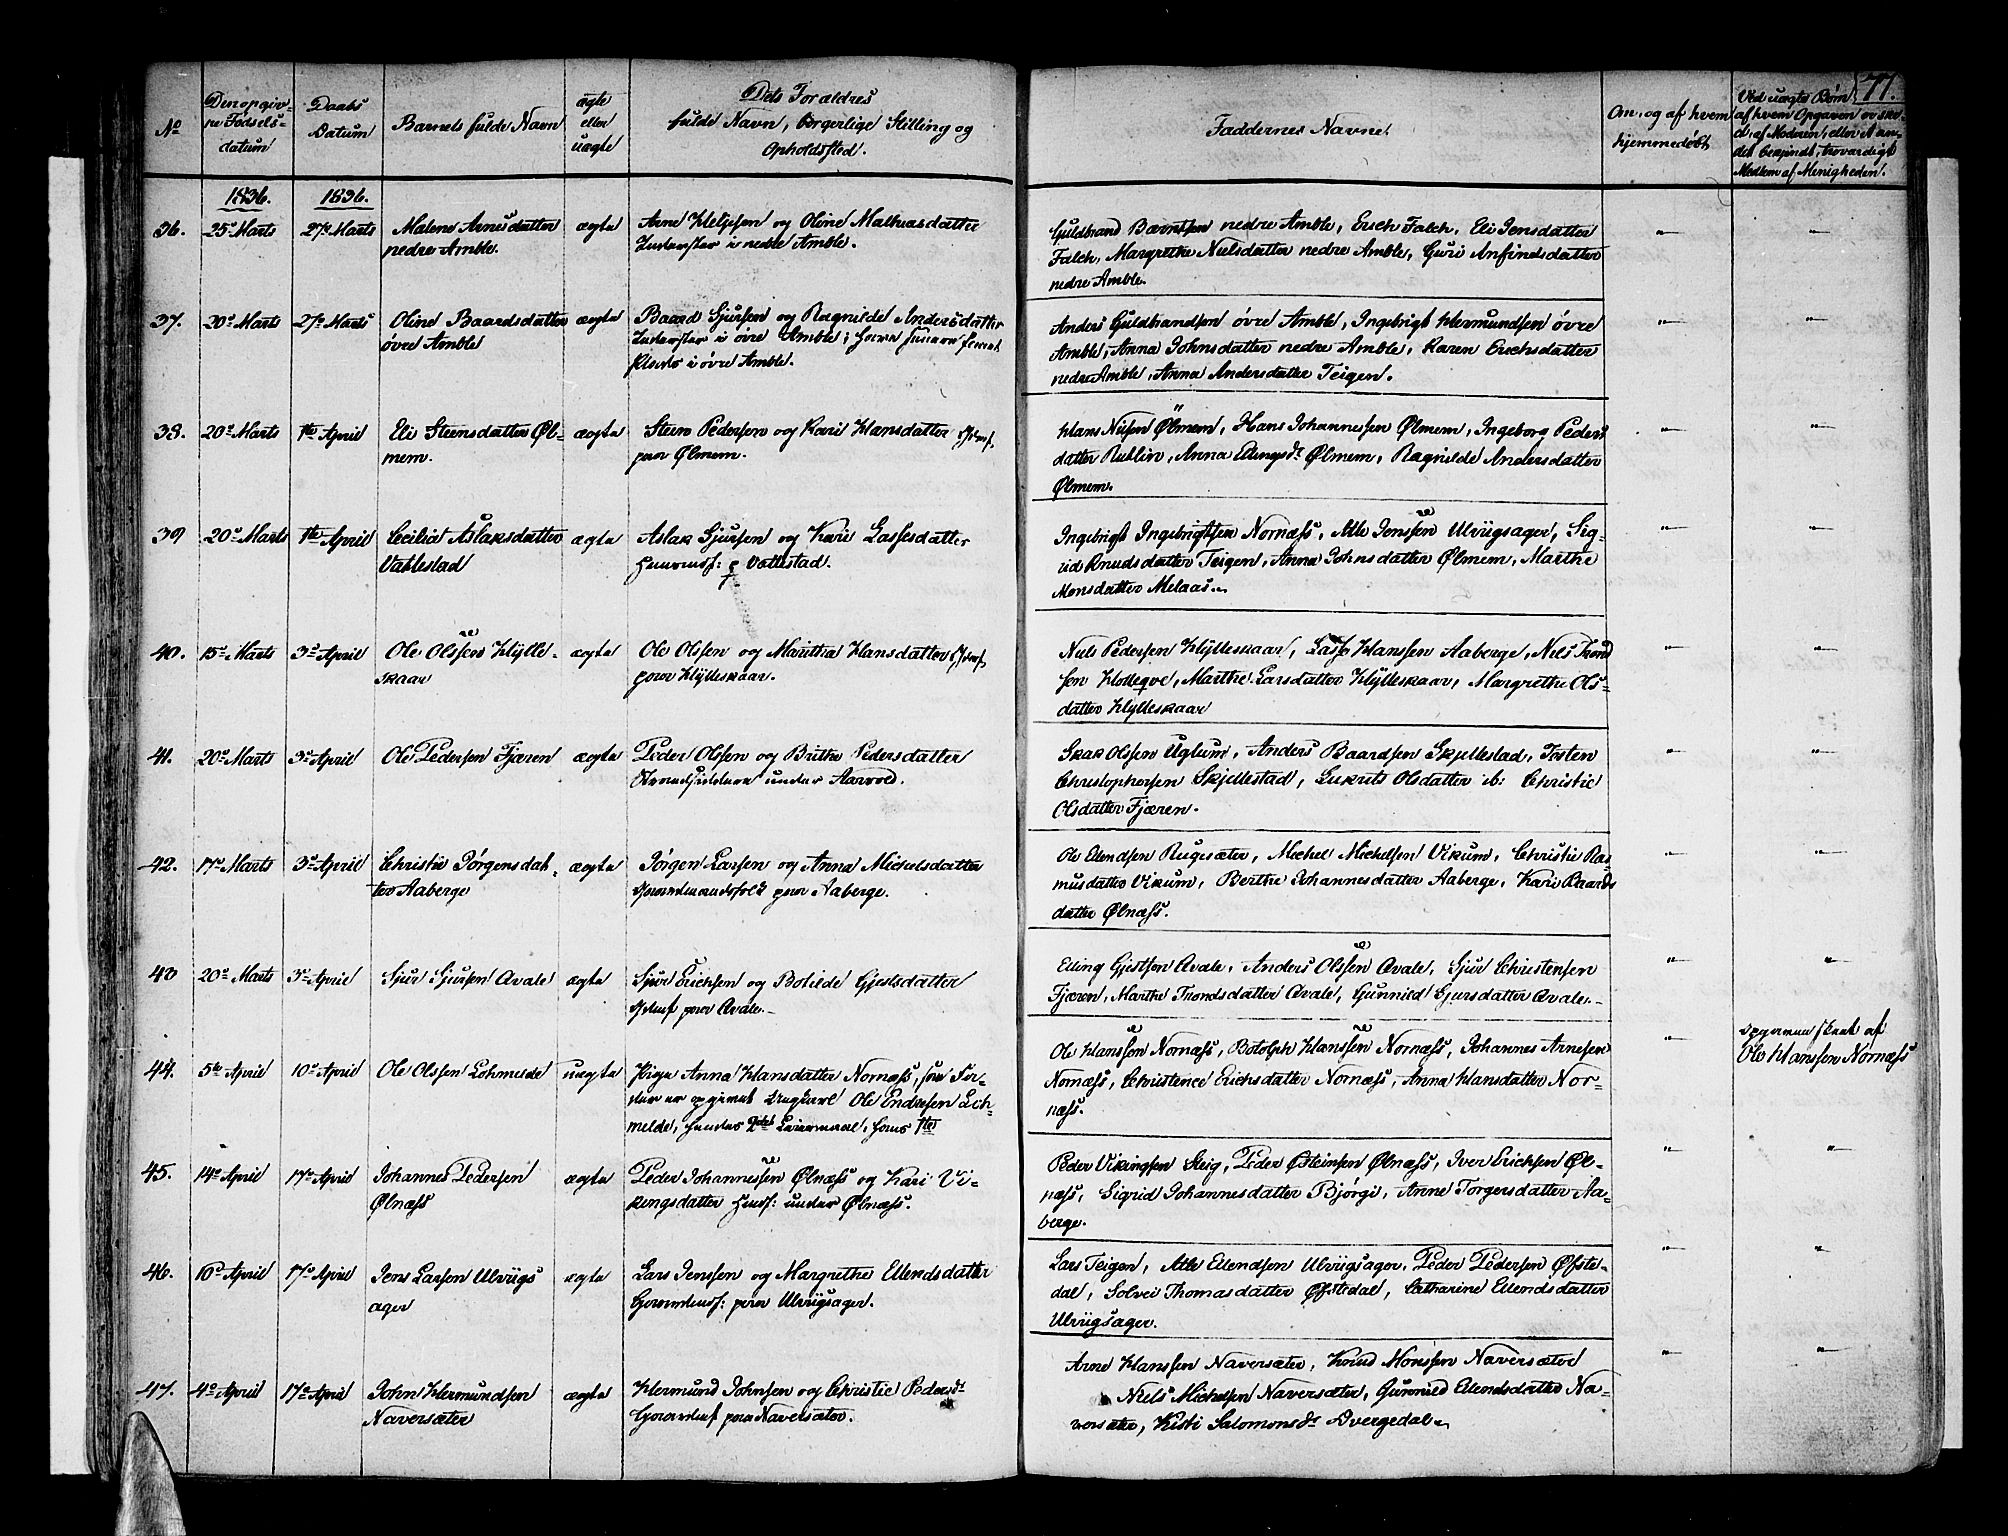 77.
No
Den opgiv-
ne Fødsels-
datum
Daabs
Datum
Barnets fulde Navn
ægte
eller
uægte
Dets Forældres
fulde Navn, borgerlige Stilling og
Opholdssted.
Faddernes Navne.
Om, og af hvem
hjemmedøbt
Ved uægte Børn
af hvem Opgaven er ske-
d, af Moderen, eller A an-
det bekjendt, troværdigt
Medlem af Menigheden.
1836. 1836.
36. 25de Marts 27de Marts Malene Arnesdatter ægte Arne Helgesen og Oline Mathiasdatter
nedre Amble. Inderster i nedre Amble.
Guldbrand Berntsen nedre Amble, Erich Falch, Eli Jensdatter
Falch, Margrethe Nielsdatter nedre Amble, Guri Anfindsdatter
nedre Amble.
37. 20de Marts 27de Marts Oline Baardsdatter ægte Baard Sjursen og Ragnilde Andersdatter
øvre Amble Inderster i øvre Amble;
i øvre Amble.
Anders Guldbrandsen øvre Amble, Ingebrigt Hermundsen øvre
Amble, Anna Johnsdatter nedre Amble, Karen Erichsdatter
nedre Amble, Anna Andersdatter Teigen.
38. 20de Marts 1ste April Eli Steensdatter Øl- ægte Steen Pedersen og Kari Hansdatter
mem. paa Ølmem.
Hans Nilsen Ølmem, Hans Johannessen Ølmem, Ingeborg Peders
datter Ruhlin, Anna Ellingsdr Ølmem, Ragnilde Andersdatter
Ølmem.
39 20de Marts 1ste April Cecilia Aslaksdatter ægte Aslak Sjursen og Kari Lassesdatter
Vatlestad Huusmdsf: p Vatlestad.
Ingebrigt Ingebrigtsen Nornæss, Atle Jenssen Ulvigsager, Sig-
rid Knudsdatter Teigen, Anna Johnsdatter Ølmem, Marthe
Monsdatter Melaas.
40. 15de Marts 3de April Ole Olssen Hylle- ægte Ole Olssen og Maritha Hansdatter
skaar paa Hylleskaar.
Niels Pedersen Hylleskaar, Lasse Hanssen Aaberge, Niels Trond
sen Hollequve, Marthe Larsdatter Hylleskaar, Margrethe Ols-
datter Hylleskaar
41. 20de Marts 3de April Ole Pedersen Fjæren ægte Peder Olssen og Brithe Pedersdatter
under Aarvol.
Skak Olssen Uglum, Anders Baardsen Skjellestad, Tosten
Christophersen Skjellestad, Lukrits Olsdatter ib: Christie
Olsdatter Fjæren.
42. 17de Marts 3de April Christie Jørgensdat- ægte Jørgen Larsen og Anna Michelsdatter
ter Aaberge Gaardmandsfolk paa Aaberge.
Ole Ellendsen Rugsæter, Michel Michelsen Vikum, Christie Ras-
musdatter Vikum, Berthe Johannesdatter Aaberge, Kari Baards
datter Ølnæss.
43 20de Marts 3de April Sjur Sjursen Avale ægte Sjur Erichsen og Botilde Gjestsdatter
paa Avale.
Elling Gjestson Avale, Anders Olssen Avale, Sjur Christensen
Fjæren, Marthe Trondsdatter Avale, Gunnild Sjursdatter Avale.
44. 5te April 10de April Ole Olssen Lohmelde uægte Pige Anna Hansdatter Nornæss, som Fa-
der er opgivet Ungkarl Ole Endresen Loh-
melde, hendes 2det Leiermaal, hans 1ste
Ole Hanssen Nornæss, Botolph Hanssen Nornæss, Johannes Arnesen
Nornæss, Christence Erichsdatter Nornæss, Anna Hansdatter Nor-
næss.
af
Ole Hanssen Nornæss
45. 14de April 17de April Johannes Pedersen ægte Peder Johannessen Ølnæss og Kari Vi-
Ølnæss kingsdatter Huusf: under Ølnæss.
Peder Vikingsen Steig, Peder Østeinsen Ølnæss, Iver Erichsen Øl-
næss, Sigrid Johannesdatter Bjørgi, Anne Torgersdatter Aa-
berge.
46. 10de April 17de April Jens Larsen Ulvigs ægte Lars Jenssen og Margrethe Ellendsdatter
ager Gaardmdsf: paa Ulvigsager.
Lars Teigen, Atle Ellendsen Ulvigsager, Peder Pedersen Øfste-
dal, Solvei Thomasdatter Øfstedal, Catharine Ellendsdatter
Ulvigsager.
47. 4de April 17de April John Hermundsen ægte Hermund Johnsen og Christie Pedersdr
Naversæter paa Naversæter.
Arne Hanssen Naversæter, Knud Monssen Naversæter
Niels Michelsen Naversæter, Gunnild Ellendsdatter Na-
versæter, Kisti Salomonsdr Dvergedal